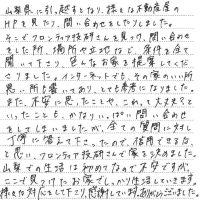 山梨県に引っ越すとなり、様々な不動産屋の
HPを見たり、問い合わせをしたりしました。
そこでフロンティア技研さんを見つけ、問い合わせ
をした所、場所や立地など、条件を全て
聞いて下さり、色んなお家を提案してくだ
さりました。インターネットでも、その家のいい所
悪い所も書いてあり、とても参考になりました。
また、不安に思ったことや、これって大丈夫?と
いったことも、かなりいっぱい問い合わせ
をしてしまいましたが、全ての質問に対し
丁寧に答えて下さったので、信用できるな、
と思い、フロンティア技研さんで家を決めました。
山梨での生活は初めてなので不安ですが、
ここで見つけたお家でしっかり生活していきます。
様々な対応をして下さり、感謝しています。ありがとうございました。